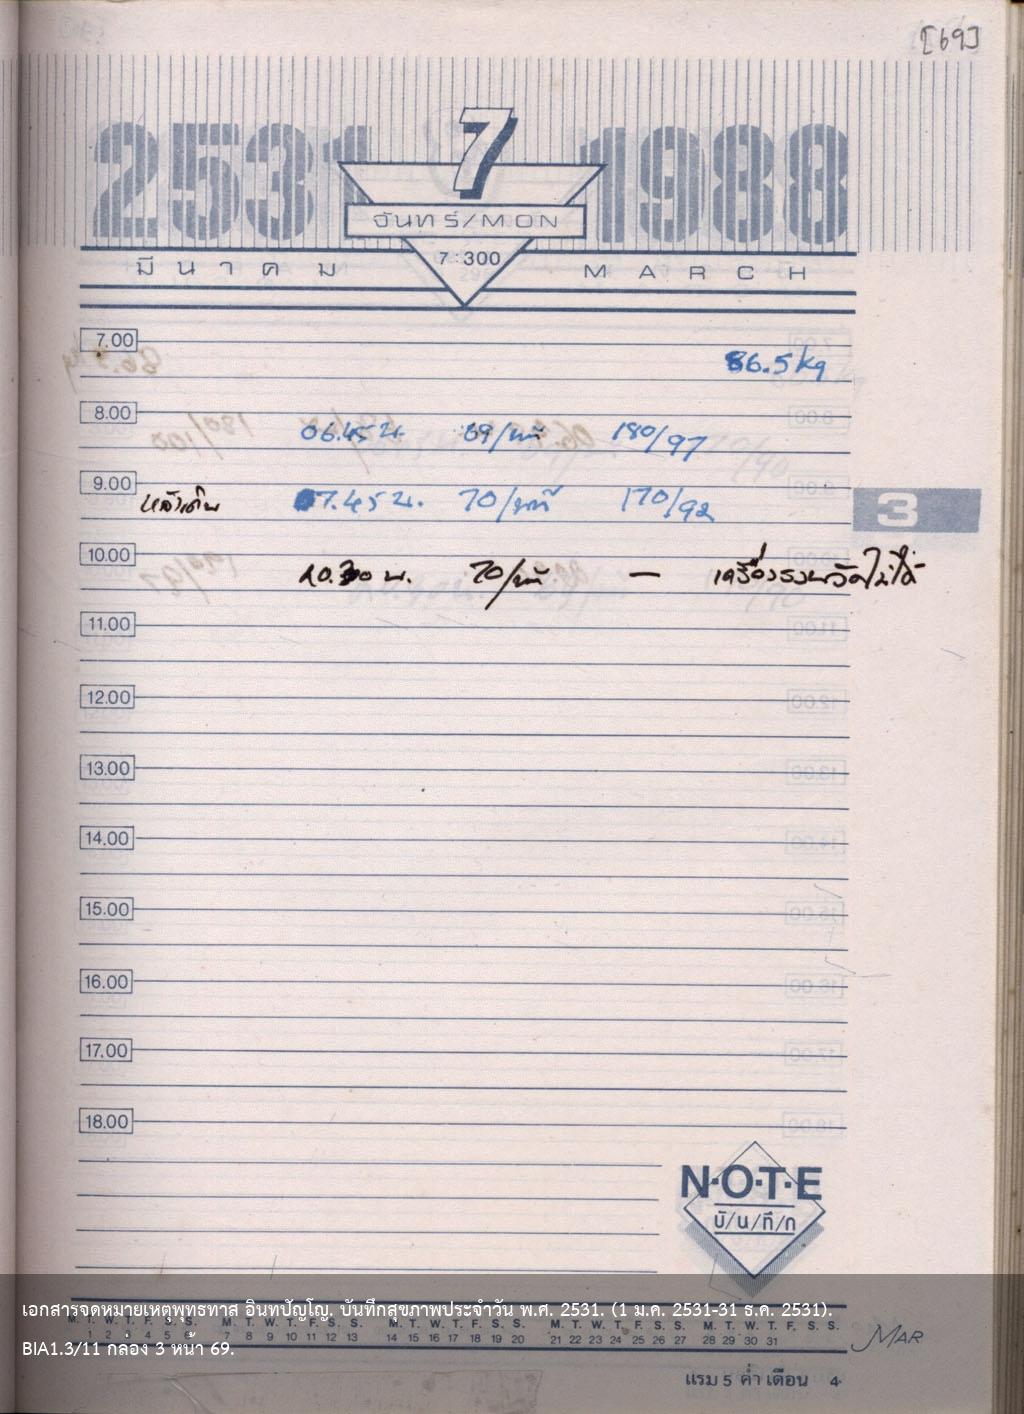 [69]
2531 7 1988
จันทร์/MON
7:300
มีนาคม MARCH
7.00
86.5 kg
8.00
06.45 น. 69/นาที 180/97
9.00
หลังเดิน 07.45 น. 70/นาที 170/92
3
10.00
20.30 น. 70/นาที — เครื่องรวนวัดไม่ได้
11.00
12.00
13.00
14.00
15.00
16.00
17.00
18.00
N·O·T·E
บั/น/ทึ/ก
เอกสารจดหมายเหตุพุทธทาส อินทปัญโญ. บันทึกสุขภาพประจำวัน พ.ศ. 2531. (1 ม.ค. 2531-31 ธ.ค. 2531).
M. T. W. T. F. S. S. M. T. W. T. F. S. S. M. T. W. T. F. S. S. M. T. W. T. F. S. S. M. T. W. T. F. S. S.
1 2 3 4 5 6 7 8 9 10 11 12 13 14 15 16 17 18 19 20 21 22 23 24 25 26 27 28 29 30 31
MAR
BIA1.3/11 กล่อง 3 หน้า 69.
แรม 5 ค่ำ เดือน 4